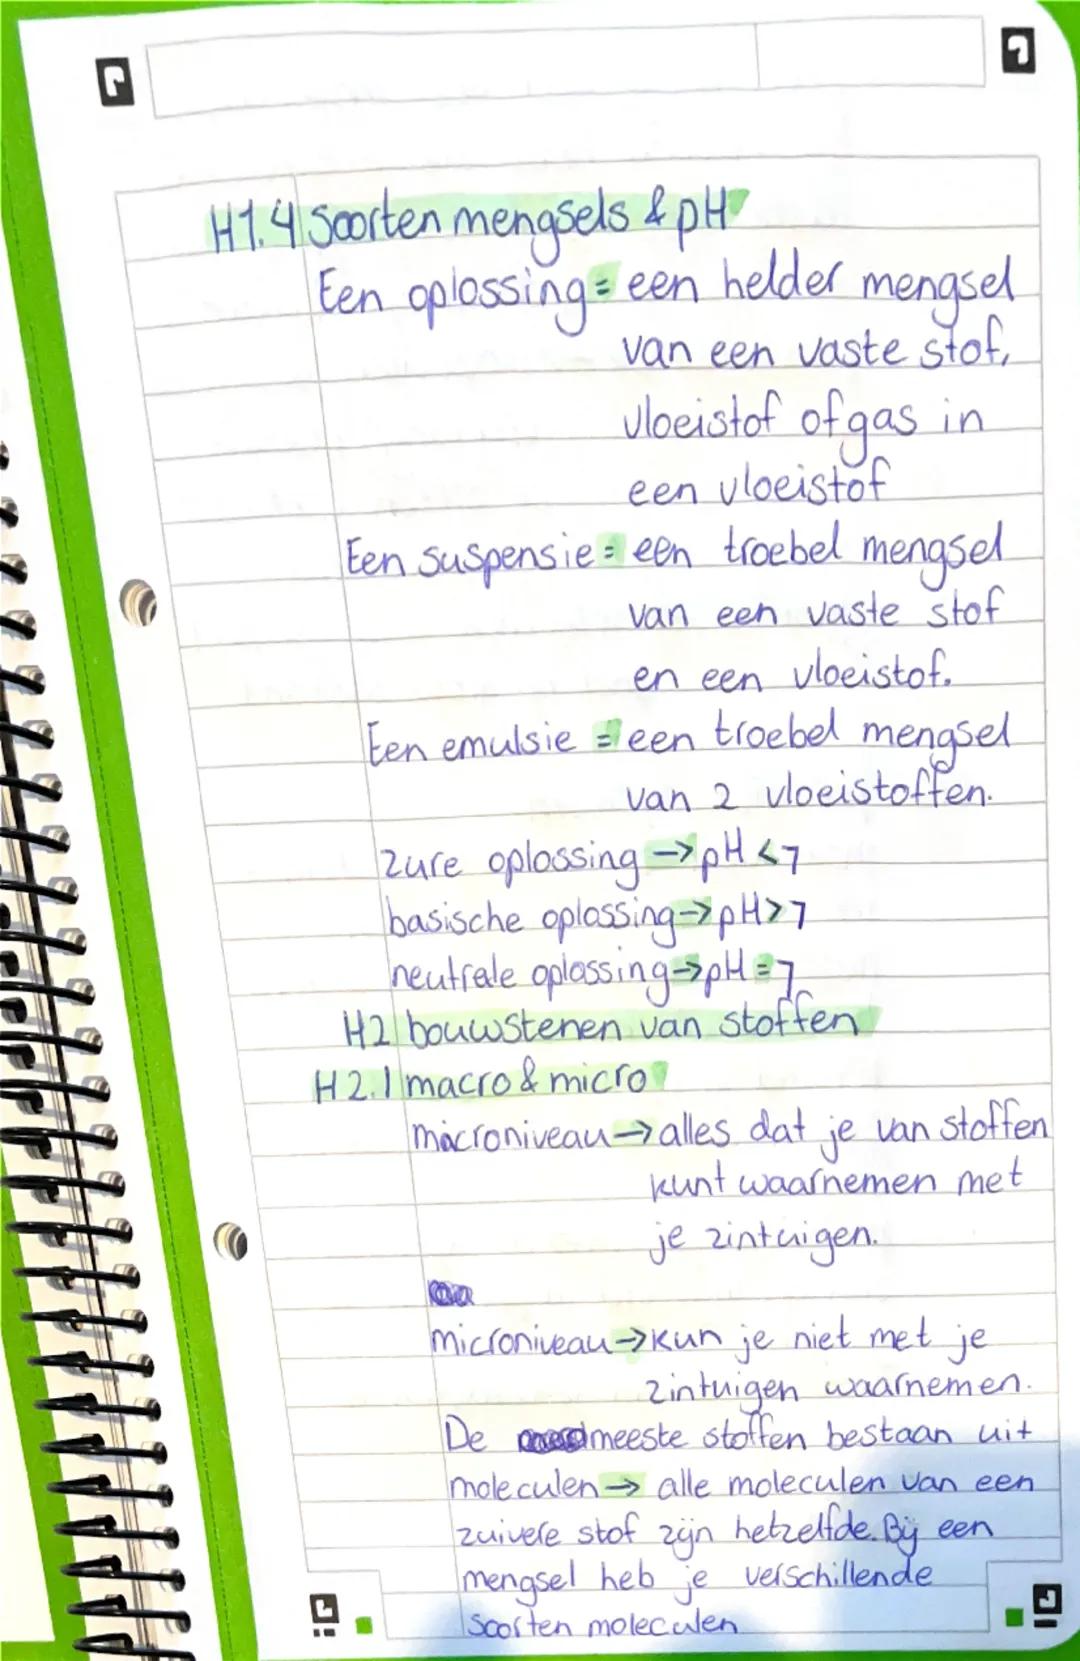 H1.4 Soorten mengsels & pH
Een oplossing = een helder mengsel
van een vaste stof,
vloeistof of gas in
een vloeistof
Een suspensie = een troebel mengsel
van een vaste stof
en een vloeistof.
Een emulsie = een troebel mengsel
van 2 vloeistoffen.
zure oplossing → pH < 7
basische oplossing → pH > 7
neutrale oplossing → pH = 7
H2 bouwstenen van stoffen
H2.1 macro & micro
macroniveau → alles dat je van stoffen
kunt waarnemen met
je zintuigen.
microniveau → kun je niet met je
zintuigen waarnemen.
De meeste stoffen bestaan uit
moleculen → alle moleculen van een
zuivere stof zijn hetzelfde. Bij een
mengsel heb je verschillende
soorten moleculen